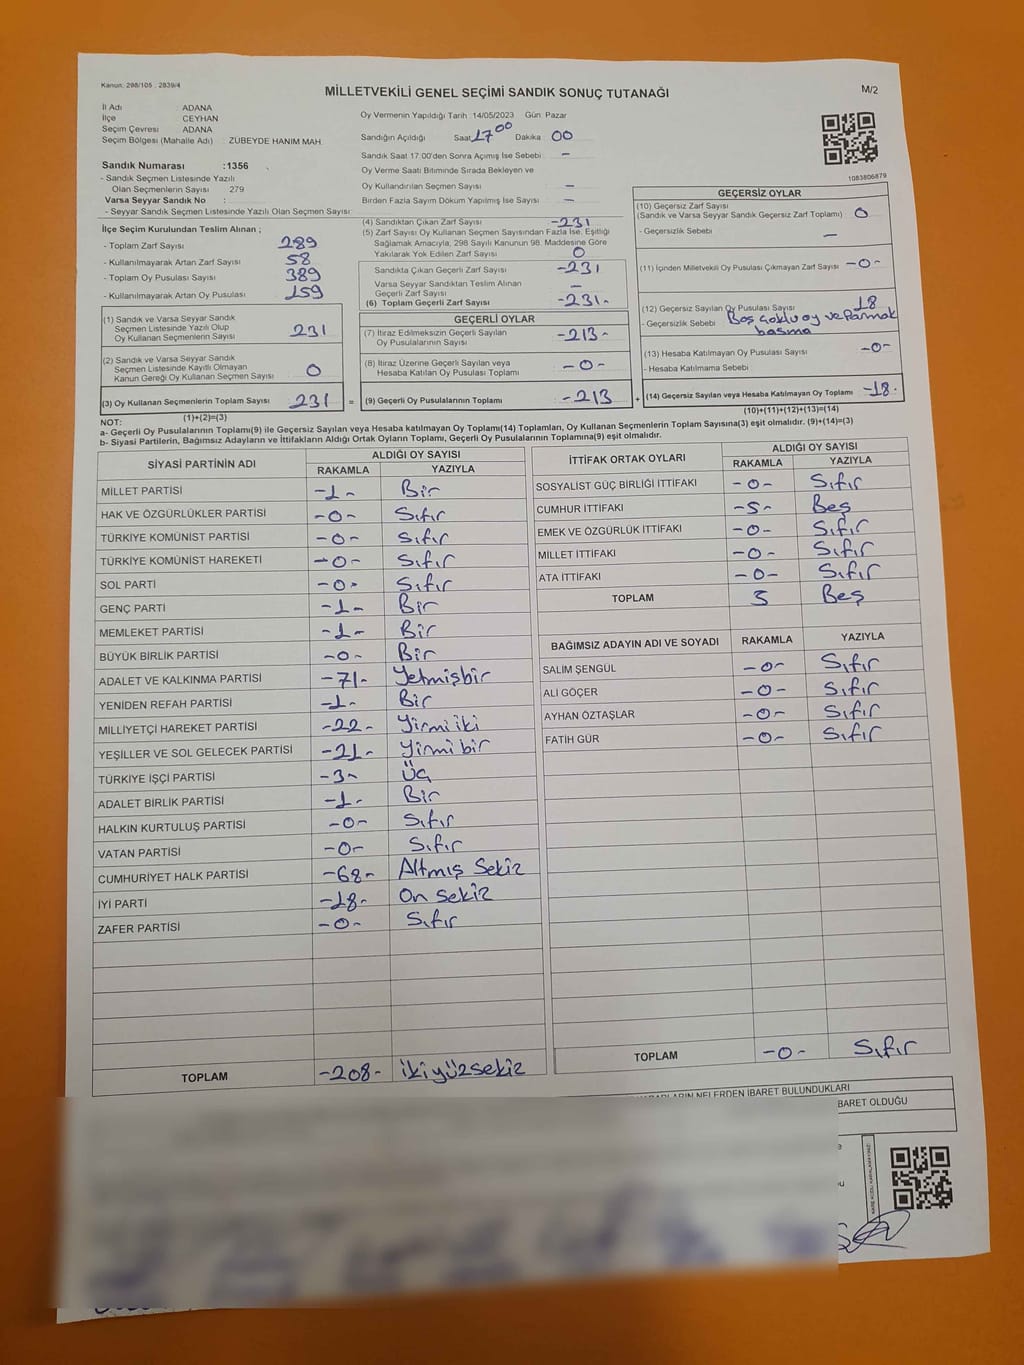 Kanun: 298/105 , 2839/4
MİLLETVEKİLİ GENEL SEÇİMİ SANDIK SONUÇ TUTANAĞI
M/2
İl Adı : ADANA
İlçe : CEYHAN
Seçim Çevresi : ADANA
Seçim Bölgesi (Mahalle Adı) : ZÜBEYDE HANIM MAH.
Sandık Numarası :1356
- Sandık Seçmen Listesinde Yazılı
Olan Seçmenlerin Sayısı : 279
Varsa Seyyar Sandık No :
- Seyyar Sandık Seçmen Listesinde Yazılı Olan Seçmen Sayısı:
İlçe Seçim Kurulundan Teslim Alınan ;
- Toplam Zarf Sayısı : 289
- Kullanılmayarak Artan Zarf Sayısı : 58
- Toplam Oy Pusulası Sayısı : 389
- Kullanılmayarak Artan Oy Pusulası : 159
(1) Sandık ve Varsa Seyyar Sandık
Seçmen Listesinde Yazılı Olup
Oy Kullanan Seçmenlerin Sayısı 231
(2) Sandık ve Varsa Seyyar Sandık
Seçmen Listesinde Kayıtlı Olmayan
Kanun Gereği Oy Kullanan Seçmen Sayısı 0
(3) Oy Kullanan Seçmenlerin Toplam Sayısı 231
(1)+(2)=(3)
Oy Vermenin Yapıldığı Tarih : 14/05/2023 Gün: Pazar
Sandığın Açıldığı Saat 17 00 Dakika : 00
Sandık Saat 17:00'den Sonra Açılmış İse Sebebi : -
Oy Verme Saati Bitiminde Sırada Bekleyen ve
Oy Kullandırılan Seçmen Sayısı : -
Birden Fazla Sayım Döküm Yapılmış İse Sayısı : -
(4) Sandıktan Çıkan Zarf Sayısı : -231
(5) Zarf Sayısı Oy Kullanan Seçmen Sayısından Fazla İse, Eşitliği
Sağlamak Amacıyla, 298 Sayılı Kanunun 98. Maddesine Göre
Yakılarak Yok Edilen Zarf Sayısı : 0
Sandıkta Çıkan Geçerli Zarf Sayısı : -231
Varsa Seyyar Sandıktan Teslim Alınan
Geçerli Zarf Sayısı : -
(6) Toplam Geçerli Zarf Sayısı : -231-
GEÇERLİ OYLAR
(7) İtiraz Edilmeksizin Geçerli Sayılan
Oy Pusulalarının Sayısı : -213-
(8) İtiraz Üzerine Geçerli Sayılan veya
Hesaba Katılan Oy Pusulası Toplamı : -0-
= (9) Geçerli Oy Pusulalarının Toplamı : -213
1083806879
GEÇERSİZ OYLAR
(10) Geçersiz Zarf Sayısı
(Sandık ve Varsa Seyyar Sandık Geçersiz Zarf Toplamı) : 0
- Geçersizlik Sebebi : -
(11) İçinden Milletvekili Oy Pusulası Çıkmayan Zarf Sayısı : -0-
(12) Geçersiz Sayılan Oy Pusulası Sayısı : 18
- Geçersizlik Sebebi : Boş Çoklu oy ve Parmak
basma
(13) Hesaba Katılmayan Oy Pusulası Sayısı : -0-
- Hesaba Katılmama Sebebi
+ (14) Geçersiz Sayılan veya Hesaba Katılmayan Oy Toplamı : -18-
(10)+(11)+(12)+(13)=(14)
NOT:
a- Geçerli Oy Pusulalarının Toplamı(9) ile Geçersiz Sayılan veya Hesaba katılmayan Oy Toplamı(14) Toplamları, Oy Kullanan Seçmenlerin Toplam Sayısına(3) eşit olmalıdır. (9)+(14)=(3)
b- Siyasi Partilerin, Bağımsız Adayların ve İttifakların Aldığı Ortak Oyların Toplamı, Geçerli Oy Pusulalarının Toplamına(9) eşit olmalıdır.
SİYASİ PARTİNİN ADI ALDIĞI OY SAYISI
RAKAMLA YAZIYLA
MİLLET PARTİSİ -1- Bir
HAK VE ÖZGÜRLÜKLER PARTİSİ -0- Sıfır
TÜRKİYE KOMÜNİST PARTİSİ -0- Sıfır
TÜRKİYE KOMÜNİST HAREKETİ -0- Sıfır
SOL PARTİ -0- Sıfır
GENÇ PARTİ -1- Bir
MEMLEKET PARTİSİ -1- Bir
BÜYÜK BİRLİK PARTİSİ -0- Bir
ADALET VE KALKINMA PARTİSİ -71- Yetmişbir
YENİDEN REFAH PARTİSİ -1- Bir
MİLLİYETÇİ HAREKET PARTİSİ -22- Yirmi iki
YEŞİLLER VE SOL GELECEK PARTİSİ -21- Yirmi bir
TÜRKİYE İŞÇİ PARTİSİ -3- Üç
ADALET BİRLİK PARTİSİ -1- Bir
HALKIN KURTULUŞ PARTİSİ -0- Sıfır
VATAN PARTİSİ -0- Sıfır
CUMHURİYET HALK PARTİSİ -68- Altmış Sekiz
İYİ PARTİ -18- On sekiz
ZAFER PARTİSİ -0- Sıfır
TOPLAM -208- ikiyüzsekiz
İTTİFAK ORTAK OYLARI ALDIĞI OY SAYISI
RAKAMLA YAZIYLA
SOSYALIST GÜÇ BİRLİĞİ İTTİFAKI -0- Sıfır
CUMHUR İTTİFAKI -5- Beş
EMEK VE ÖZGÜRLÜK İTTİFAKI -0- Sıfır
MİLLET İTTİFAKI -0- Sıfır
ATA İTTİFAKI -0- Sıfır
TOPLAM 5 Beş
BAĞIMSIZ ADAYIN ADI VE SOYADI RAKAMLA YAZIYLA
SALİM ŞENGÜL -0- Sıfır
ALİ GÖÇER -0- Sıfır
AYHAN ÖZTAŞLAR -0- Sıfır
FATİH GÜR -0- Sıfır
TOPLAM -0- Sıfır
NELERDEN İBARET BULUNDUKLARI
BARET OLDUĞU